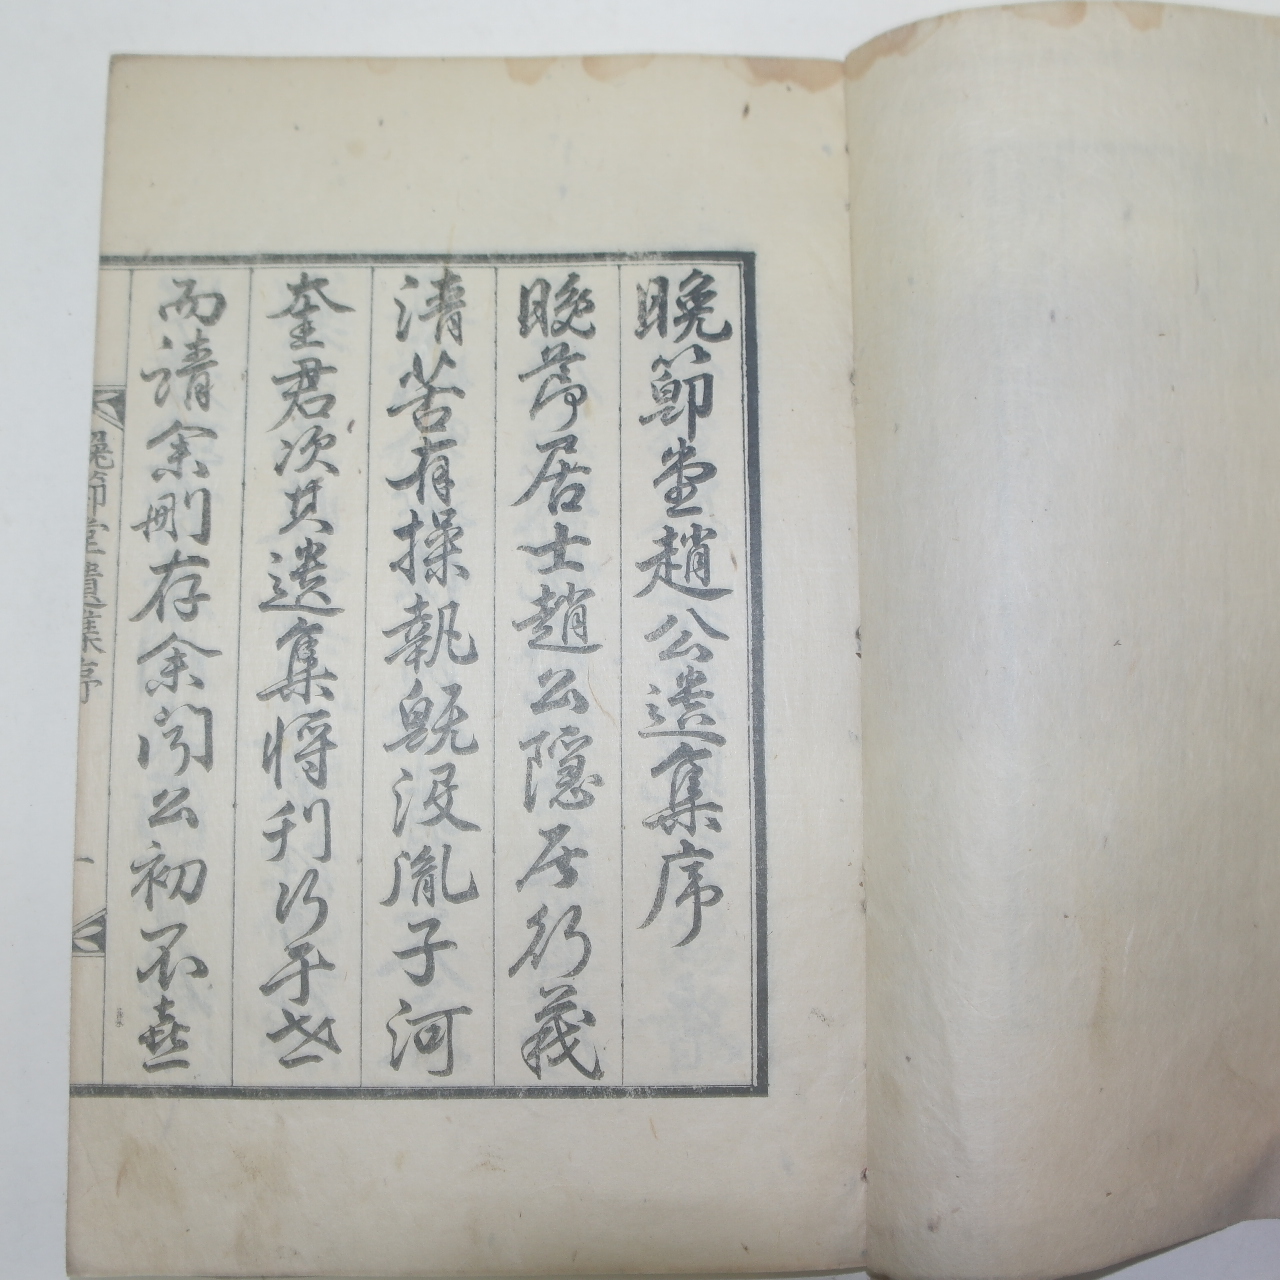 晩節堂趙公遺集序
晩節居士趙公隱居行義
清苦有操執旣沒胤子河
奎君次其遺集將刊行于世
而請余刪存余閔公初不喜
晩節堂遺集序
一